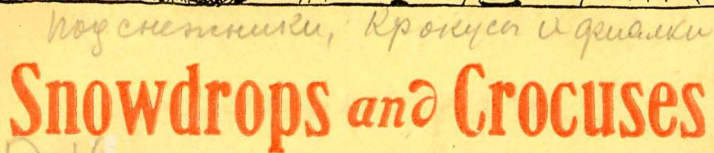 Подснежники, Крокусы и фиалки
Snowdrops and Crocuses